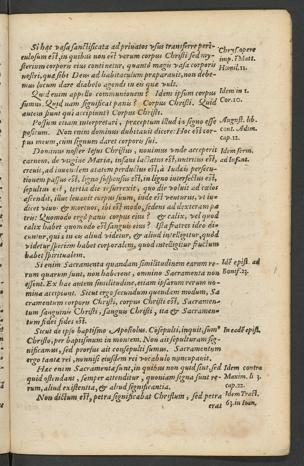 Si hæc vasa sanctificata ad priuatos vsus transferre peri-
culosum est, in quibus non est verum corpus Christi sed my-
sterium corporis eius continetur, quanto magis vasa corporis
nostri, quæ sibi Deus ad habitaculum præparauit, non debe-
mus locum dare diabolo agendi in eis quæ vult.
Chrysostome
imp. Matt.
Homil. 11.
Quid enim appello communionem? Idem ipsum corpus
sumus. Quid nam significat panis? Corpus Christi. Quid
autem fiunt qui accipiunt? Corpus Christi.
Idem in 1.
Cor. 10.
Possum etiam interpretari, præceptum illud in signo esse
positum. Non enim dominus dubitauit dicere: Hoc est cor-
pus meum, cum signum daret corporis sui.
August. lib.
cont. Adim.
cap. 12.
Dominus noster Iesus Christus, nouimus vnde acceperit
carnem, de virgine Maria, infans lactatus est, nutritus est,
creuit, ad iuuenilem ætatem perductus est, à Iudæis persecu-
tionem passus est, ligno suspensus est, in ligno interfectus est,
sepultus est, tertia die resurrexit, quo die voluit ad cælos
ascendit, illuc leuauit corpus suum, inde est venturus, vt iu-
dicet viuos & mortuos, ibi est modo, sedens ad dexteram pa-
tris: Quomodo ergo panis corpus eius? & calix, vel quod
calix habet quomodo est sanguis eius? Ista fratres ideo di-
cuntur, quia in eis aliud videtur, & aliud intelligitur, quod
videtur speciem habet corporalem, quod intelligitur fructum
habet spiritualem.
Idem serm.
ad Infant.
Si enim Sacramenta quandam similitudinem earum re-
rum quarum sunt, non haberent, omnino Sacramenta non
essent. Ex hac autem similitudine, etiam ipsarum rerum no-
mina accipiunt. Sicut ergo secundum quendam modum, Sa-
cramentum corporis Christi, corpus Christi est, Sacramen-
tum sanguinis Christi, sanguis Christi, ita & Sacramen-
tum fidei fides est.
Idem epist. ad
Bonif. 23.
Sicut de ipso baptismo Apostolus. Consepulti, inquit, sumus
Christo, per baptismum in mortem. Non ait sepulturam sig-
nificamus, sed prorsus ait consepulti sumus. Sacramentum
ergo tantæ rei, nonnisi eiusdem rei vocabulo nuncupauit.
In eadem epist.
Hæc enim Sacramenta sunt, in quibus non quid sint, sed
quid ostendant, semper attenditur, quoniam signa sunt re-
rum, aliud existentia, & aliud significantia.
Idem contra
Maxim. li. 3.
cap. 22.
Non dictum est, petra significabat Christum, sed petra
erat
Idem Tract.
63. in Ioan.